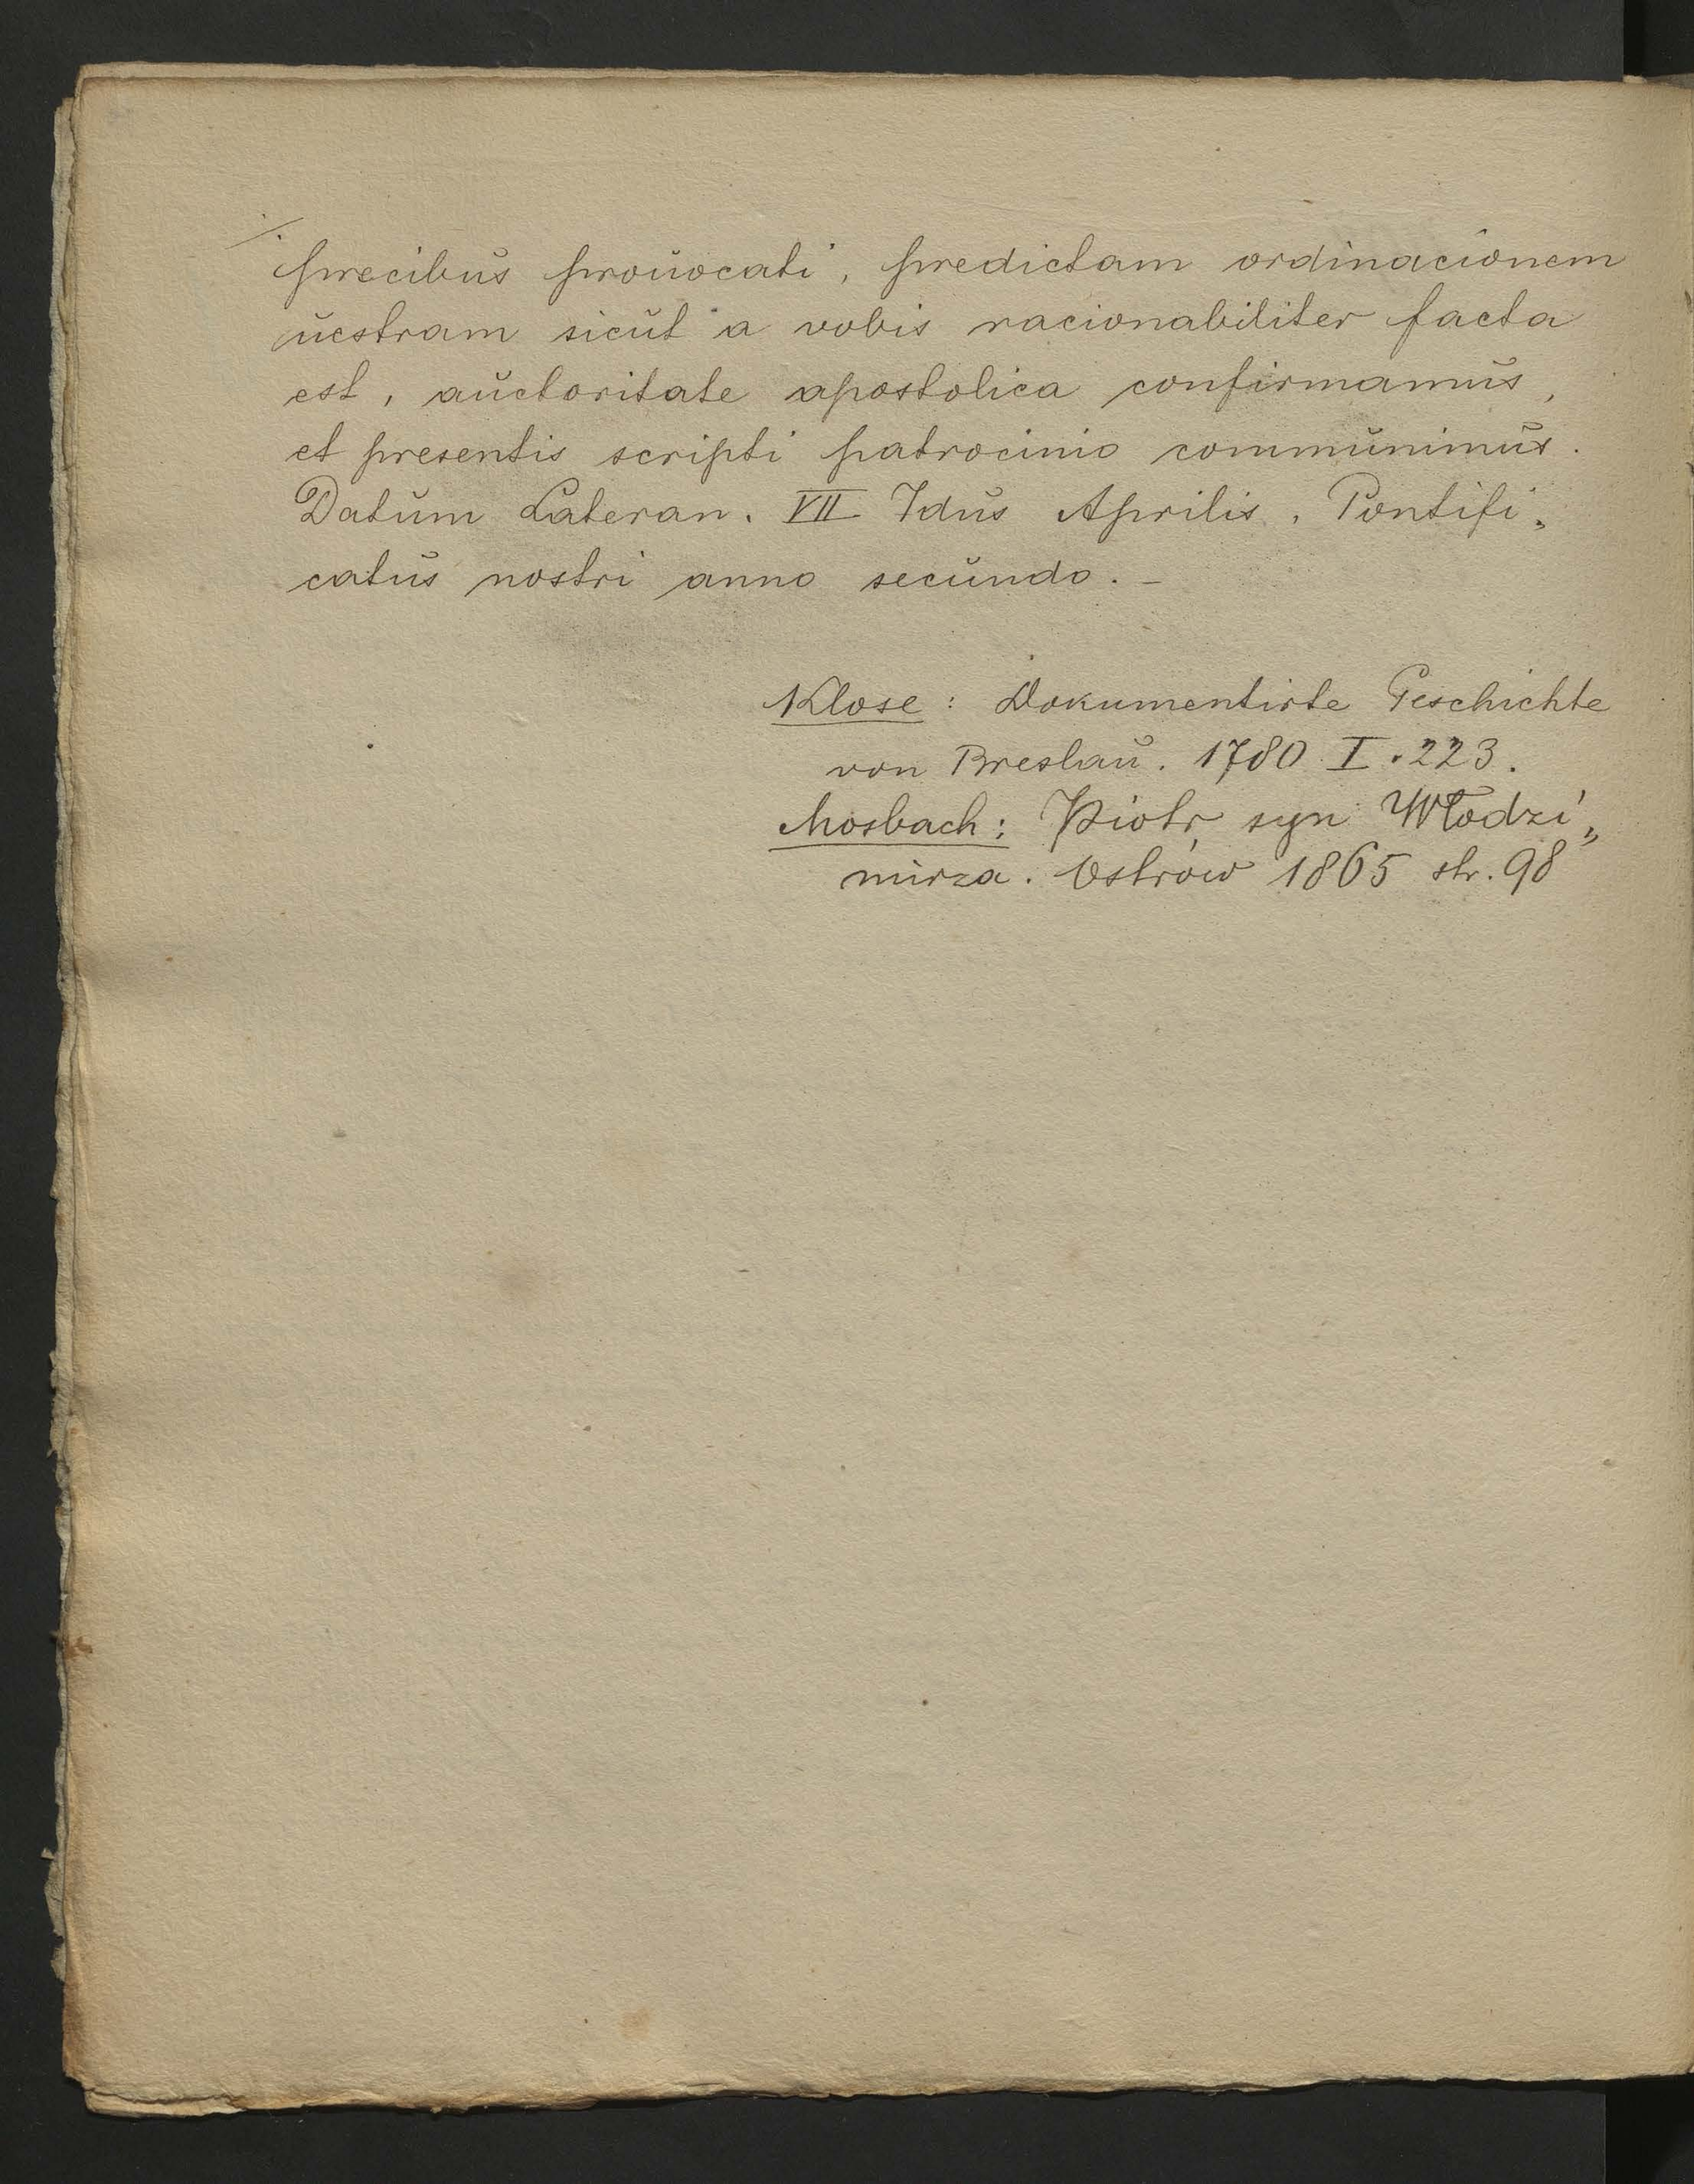 ./.
precibus prouocati, predictam ordinacionem
uestram sicut a vobis racionabiliter facta
est, auctoritate apostolica confirmamus,
et presentis scripti patrocinio communimus.
Datum Lateran. VII Idus Aprilis, Pontifi„
catus nostri anno secundo. –
Klose: Dokumentirte Geschichte
von Breslau. 1780 I. 223.
Mosbach: Piotr syn Włodzi„
mirza. Ostrów 1865 str. 98